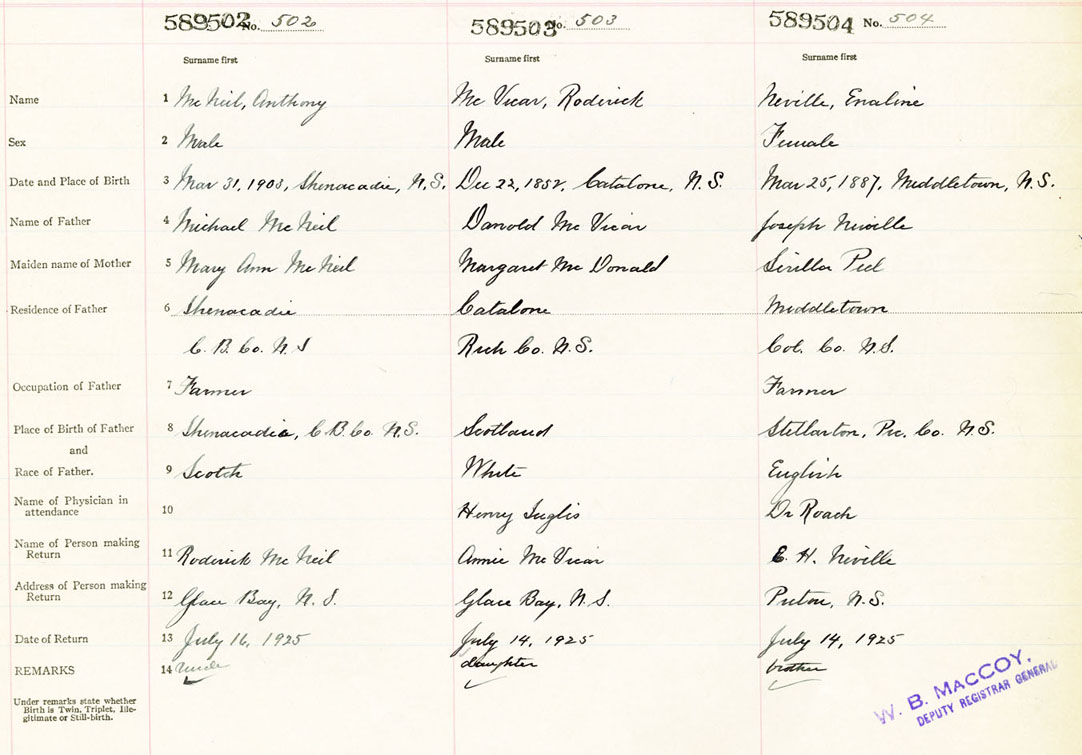 589502 No. 502 589503 No. 503 589504 No. 504
Surname first Surname first Surname first
Name 1 McNeil, Anthony Mc Vicar, Roderick Neville, Enaline
Sex 2 Male Male Female
Date and Place of Birth 3 Mar 31, 1903, Shenacadie, N.S. Dec 22, 1852, Catalone, N.S. Mar 25, 1887, Middletown, N.S.
Name of Father 4 Michael McNeil Danold Mc Vicar Joseph Neville
Maiden name of Mother 5 Mary Ann McNeil Margaret McDonald Peel
Residence of Father 6 Shenacadie Catalone Middletown
C. B. Co. N.S Rich Co. N.S. Col. Co. N.S.
Occupation of Father 7 Farmer Farmer
Place of Birth of Father 8 Shenacadie, C.B.Co. N.S. Scotland Stellarton, Pic. Co. N.S.
and
Race of Father. 9 Scotch White English
Name of Physician in
attendance 10 Henry Inglis Dr Roach
Name of Person making
Return 11 Roderick McNeil Annie Mc Vicar E. H. Neville
Address of Person making
Return 12 Glace Bay, N.S. Glace Bay, N.S. Pictou, N.S.
Date of Return 13 July 16, 1925 July 14, 1925 July 14, 1925
REMARKS 14 Uncle daughter brother
Under remarks state whether
Birth is Twin, Triplet, Ille-
gitimate or Still-birth.
W. B. MACCOY,
DEPUTY REGISTRAR GENERAL